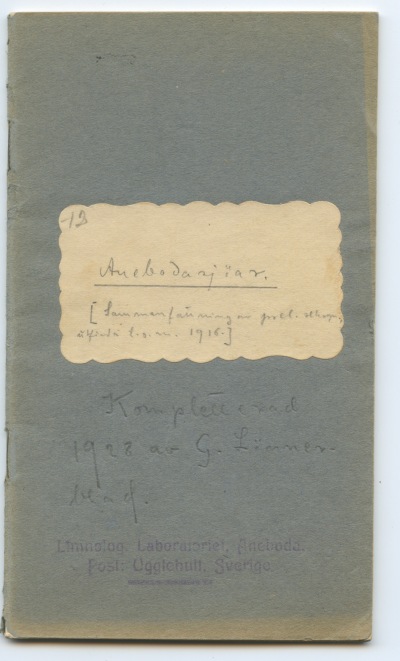 13
Anebodasjöar.
[Sammanfattning av prel.
utförda t.o.m. 1916.]
Kompletterad
1928 av G. Lönner-
blad.
Limnolog. Laboratoriet, Aneboda.
Post: Ugglehult, Sverige.